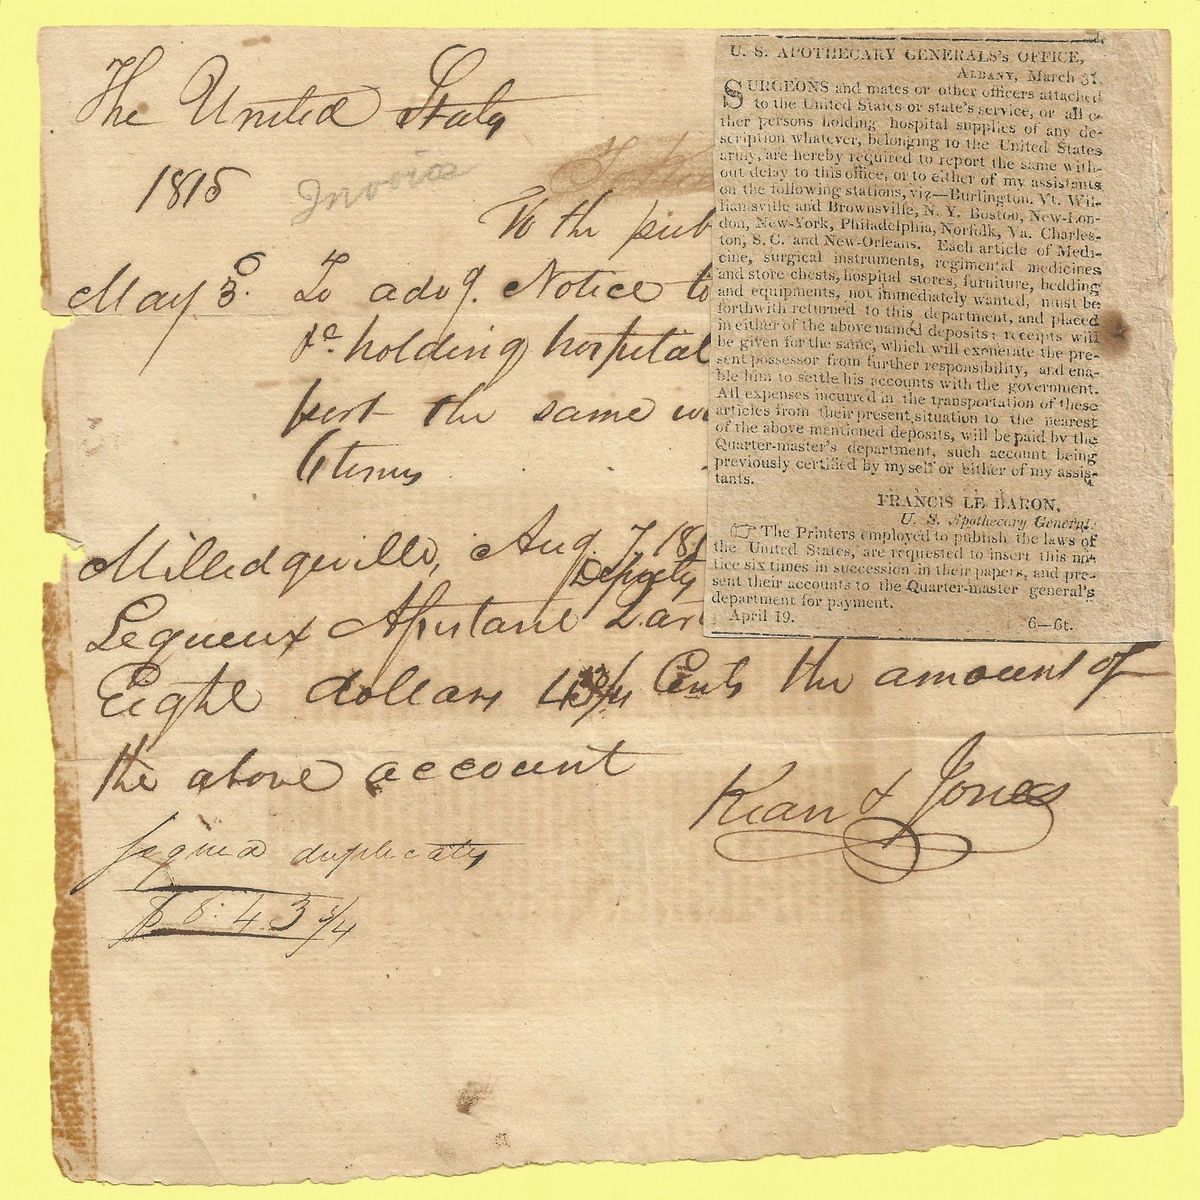 The United States
1815
Invoice
To the pub
May 3. To adv g. Notice to
&c holding hospital
port the same
6 times
Milledgeville, Aug. 7, 181
Deputy
Lequeux Assistant
Eight dollars 43 3/4 Cents the amount of
the above account
Kean & Jones
signed duplicates
$ 8: 43 3/4
U. S. APOTHECARY GENERALS's OFFICE,
ALBANY, March 31.
SURGEONS and mates or other officers attached
to the United States or state's service, or all o-
ther persons holding hospital supplies of any de-
scription whatever, belonging to the United States
army, are hereby required to report the same with-
out delay to this office, or to either of my assistants
on the following stations, viz—Burlington. Vt. Wil-
liamsville and Brownsville, N. Y. Boston, New-Lon-
don, New-York, Philadelphia, Norfolk, Va. Charles-
ton, S. C. and New-Orleans. Each article of Medi-
cine, surgical instruments, regimental medicines
and store chests, hospital stores, furniture, bedding
and equipments, not immediately wanted, must be
forthwith returned to this department, and placed
in either of the above named deposits; receipts will
be given for the same, which will exonerate the pre-
sent possessor from further responsibility, and ena-
ble him to settle his accounts with the government.
All expenses incurred in the transportation of these
articles from their present situation to the nearest
of the above mentioned deposits, will be paid by the
Quarter-master's department, such account being
previously certified by myself or either of my assis-
tants.
FRANCIS LE BARON,
U. S. Apothecary General.
☞ The Printers employed to publish the laws of
the United States, are requested to insert this no-
tice six times in succession in their papers, and pre-
sent their accounts to the Quarter-master general's
department for payment.
April 19. 6—6t.